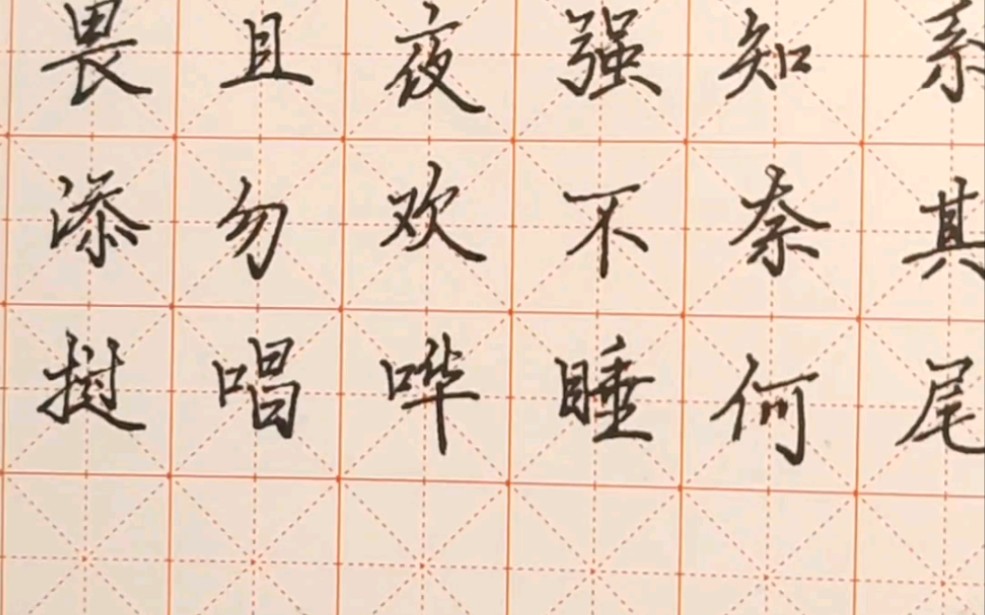 系其尾
知奈何
强不睡
夜欢哗
且勿唱
畏添挝